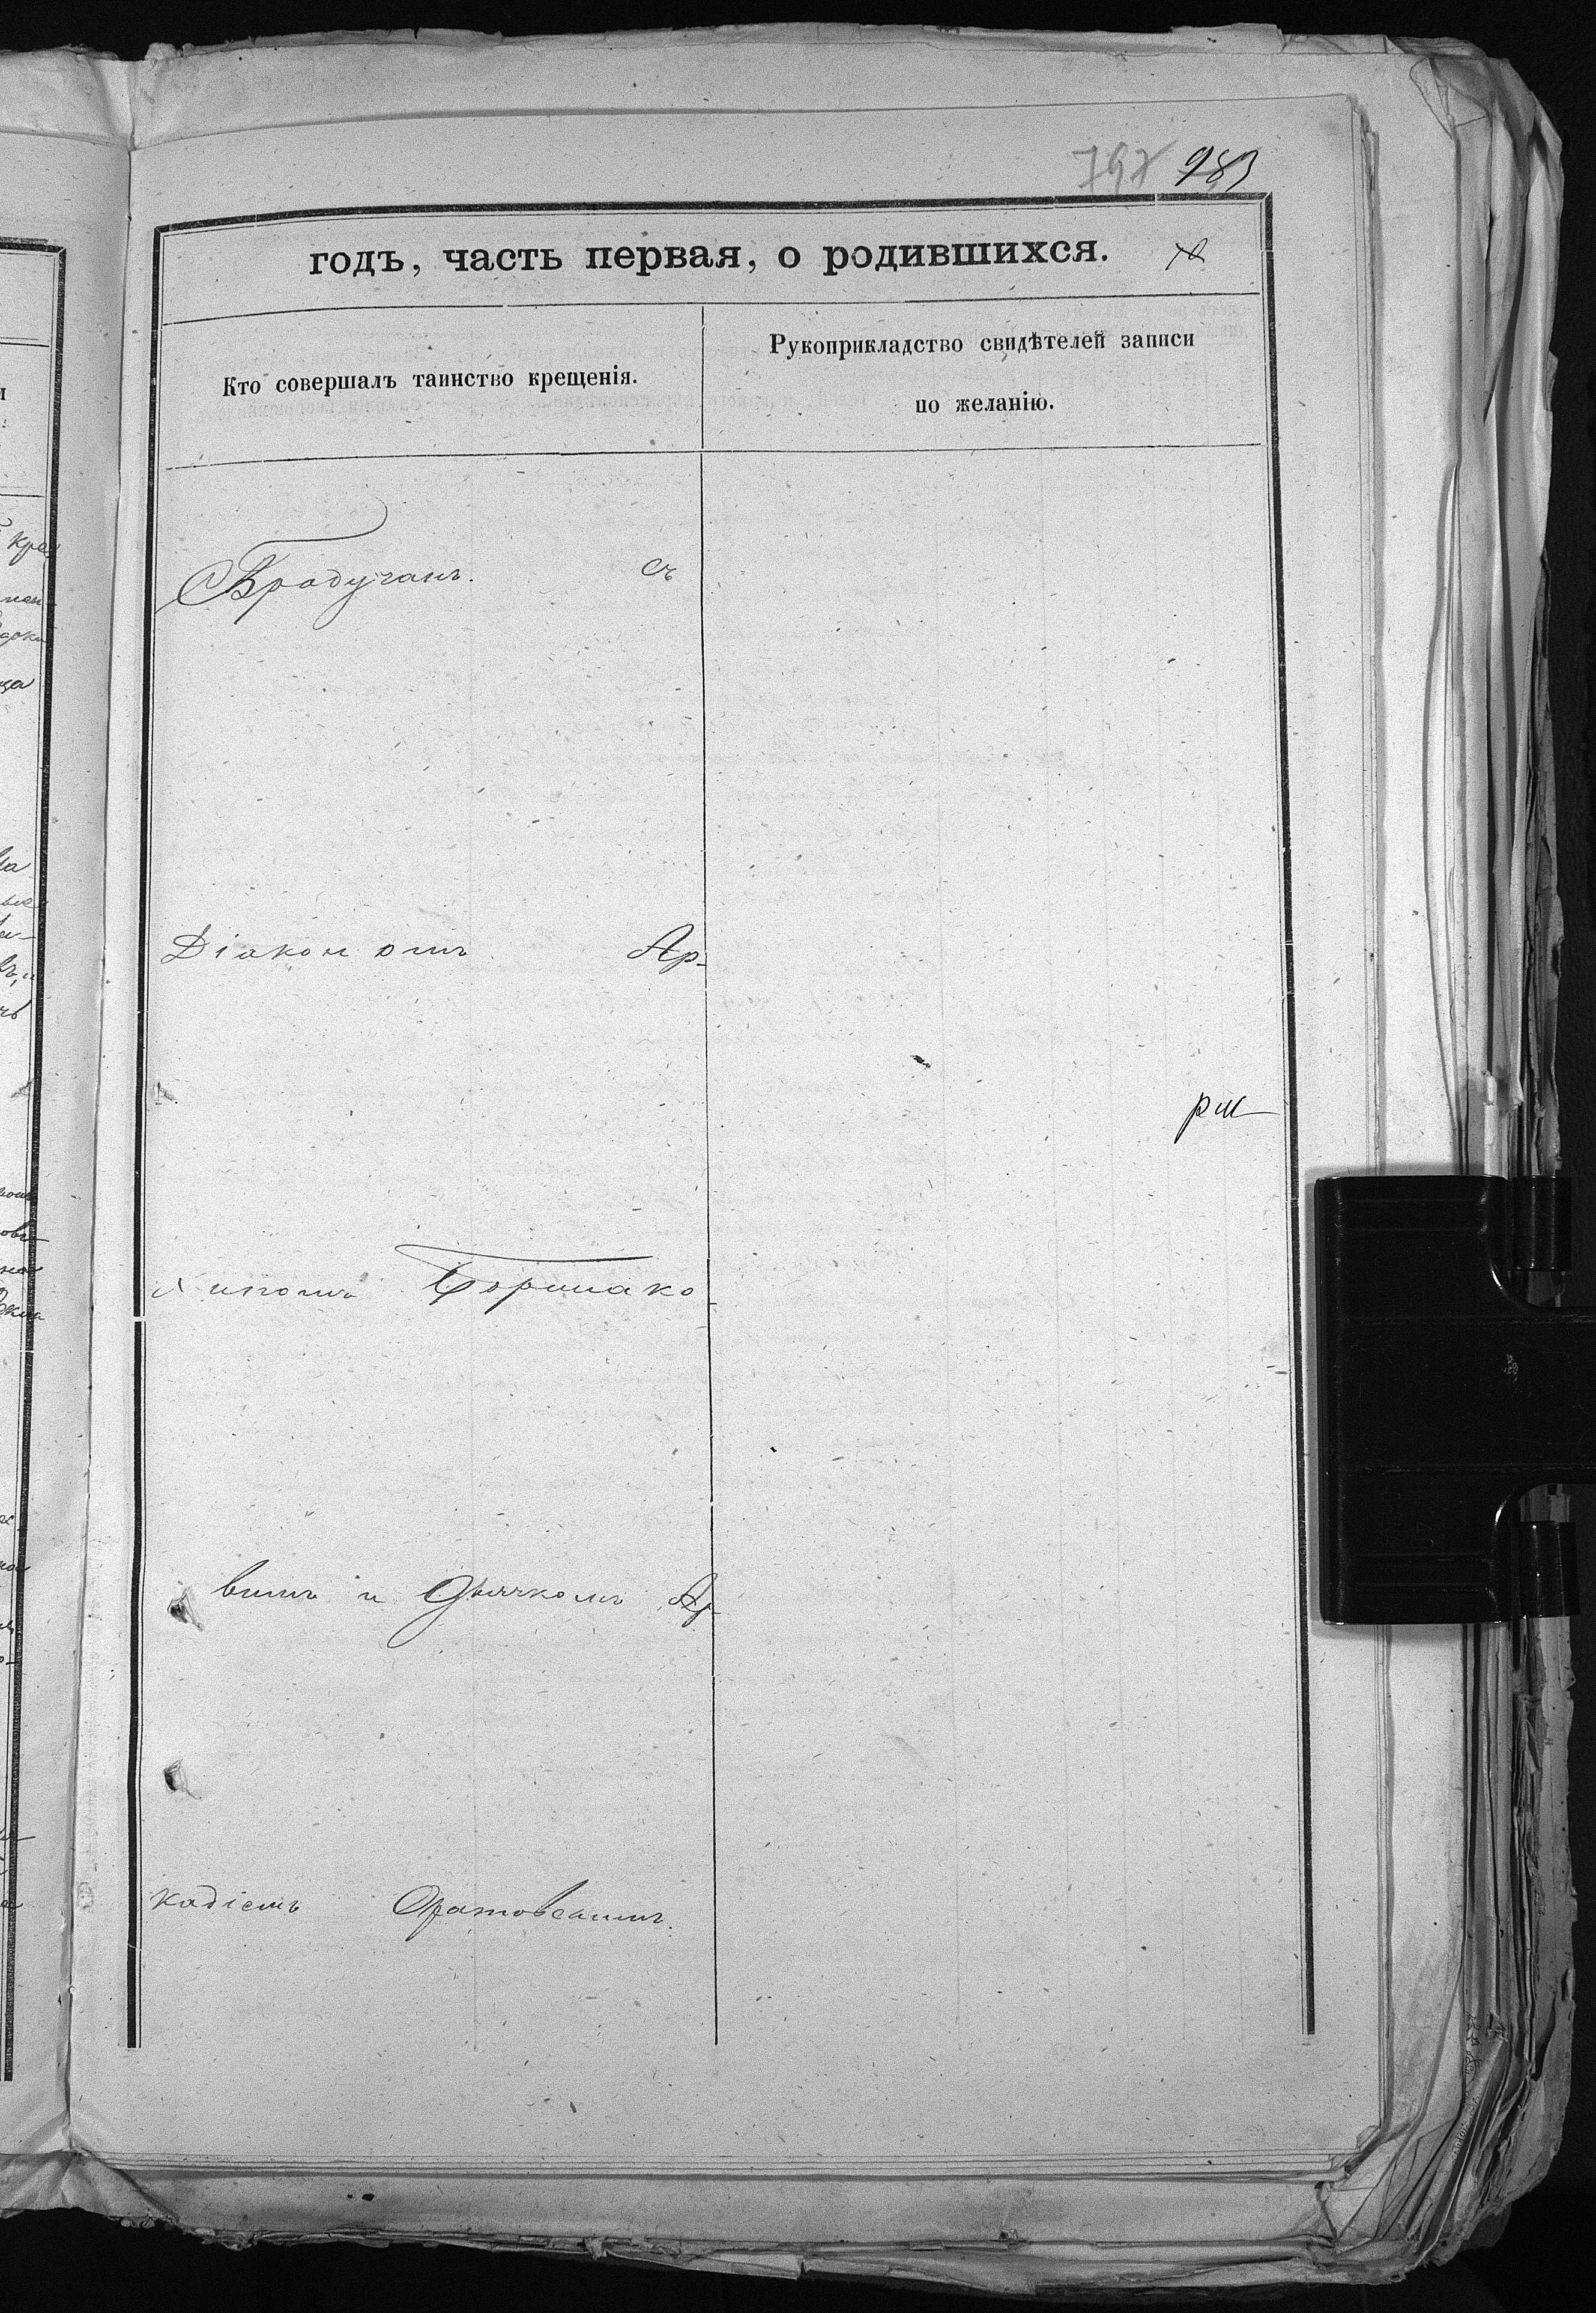 983
годъ, часть первая, о родившихся.
Кто совершалъ таинство крещенія.
Рукоприкладство свидѣтелей записи
по желанію.
Брадучанъ. съ
Діакономъ Ар-
хипомъ Боршако-
вымъ и Дьячкомъ Ар-
кадіемъ Оратовскимъ.